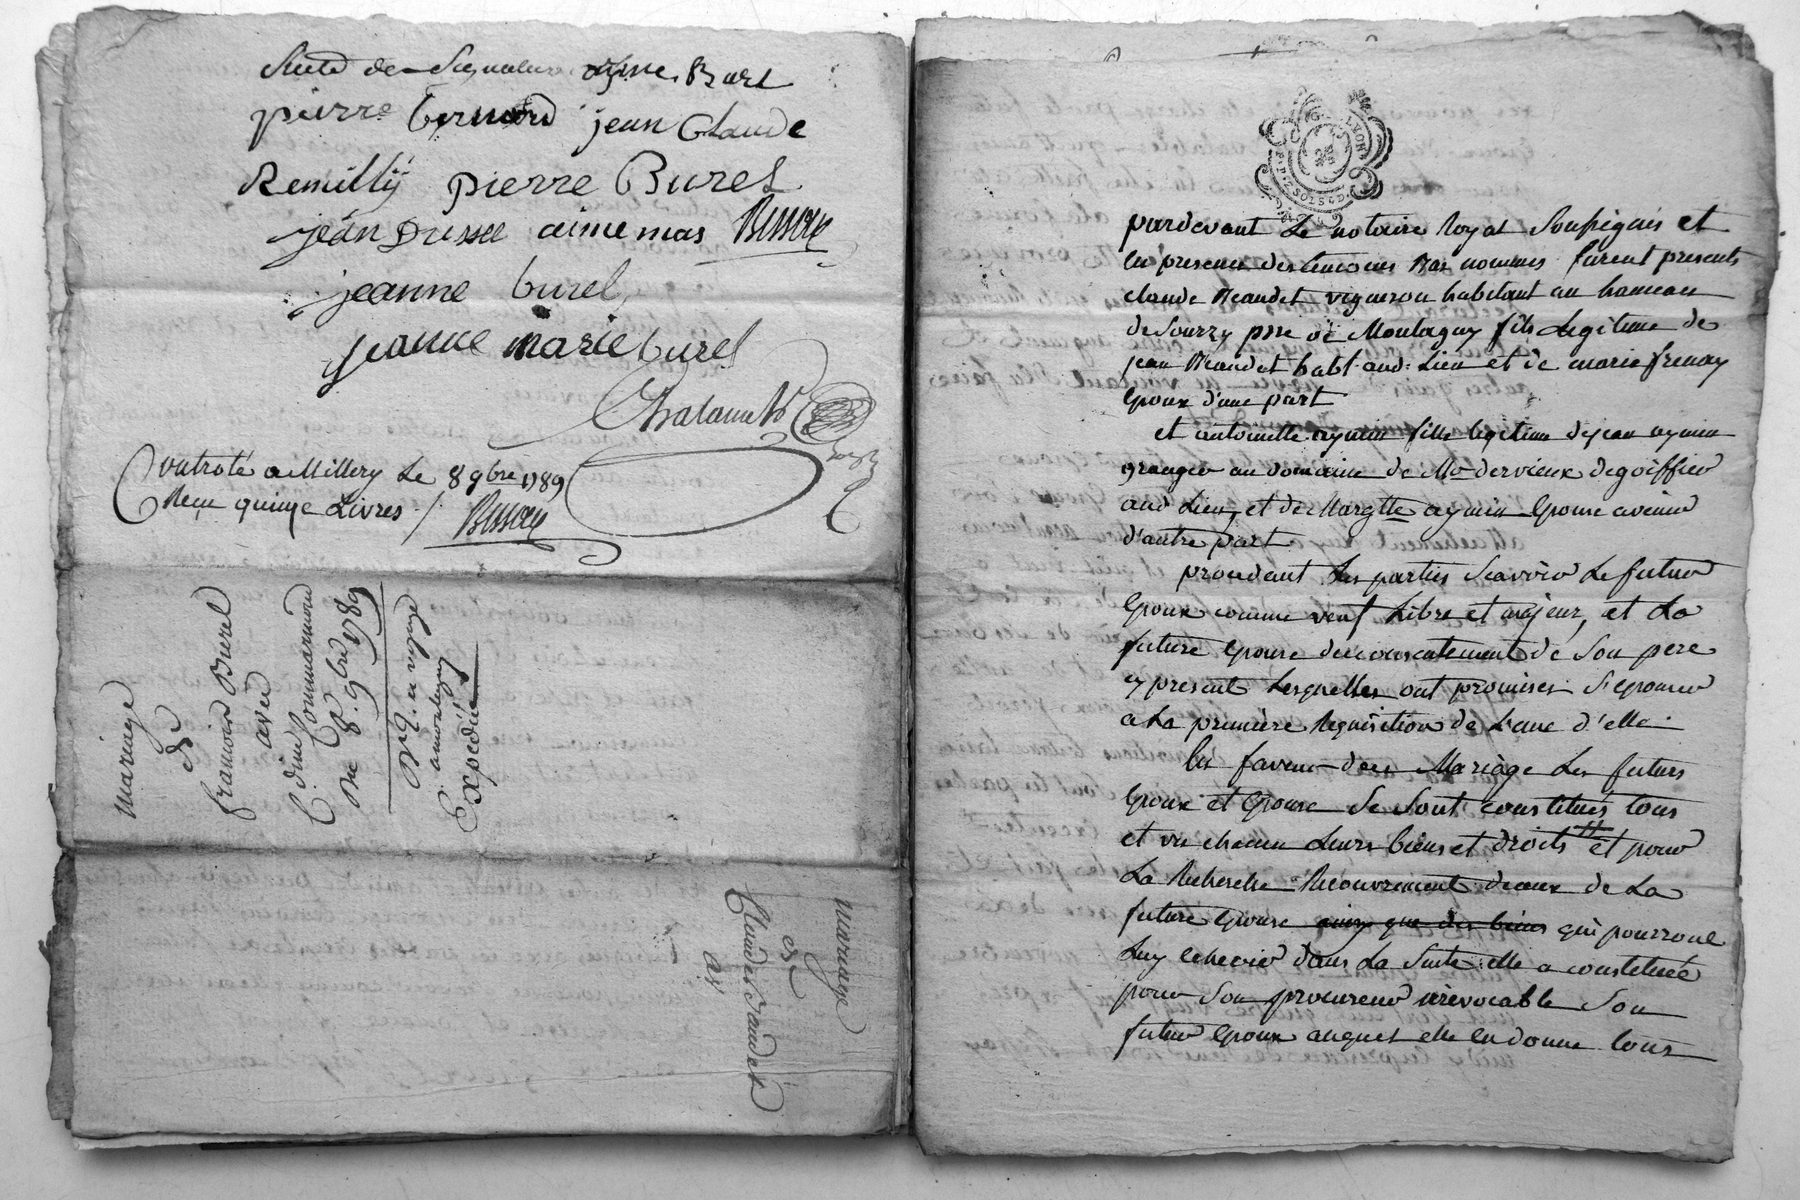 Suite de Signature
pierre bernard jean Claude
Remillÿ pierre Burel
jean Dussee aime mas Besson
jeanne burel
jeanne marie burel
Controlé a Millery Le 8 9bre 1789
Reçu quinze Livres / Besson
mariage
de
francois Burel
avec
Du 8. 9bre 1789
Expédié
mariage
de
Claude Beaudet
av
pardevant Le notaire Royal Soussignés et
en presence des temoins Bas nommés furent presents
claude Beaudet vigneron habitant au hameau
de Sourzy psse de Montagny fils Legitime de
jean Beaudet habt. aud: Lieu et de marie frenay
Epoux d'une part
et antoinette aymin fille legitime de jean aymin
granger au domaine de Mr dervieux degoiffieu
aud Lieu, et de Margtte aymin Epouse avenir
d'autre part
procedant Les parties Scavoir Le futur
Epoux comme veuf Libre et majeur, et La
future Epouse du consentement de Son pere
cy present Lesquelles ont promises S'Epouser
a La première Requisition de L'une d'elle
En faveur dece Mariage Les futurs
Epoux et Epouse Se Sont constitués tous
et un chacun Leurs biens et droits # et pour
La Recherche Recouvrement deceux de La
future Epouse ainsy que des biens qui pourront
Luy echeoir dans La Suite elle a constituée
pour Son procureur irrevocable Son
futur Epoux auquel elle en donne tous